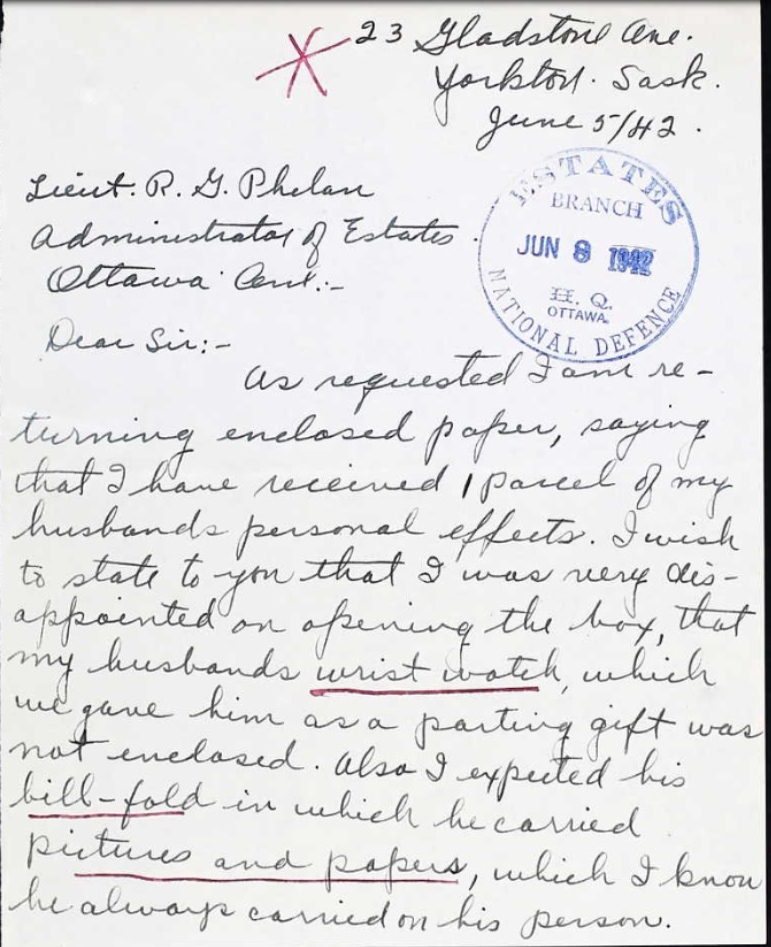 23 Gladstone Ave.
Yorkton. Sask.
June 5/42.
ESTATES
BRANCH
JUN 8 1942
H. Q.
OTTAWA
NATIONAL DEFENCE
Lieut. R. G. Phelan
Administrator of Estates.
Ottawa Ont.:-
Dear Sir:-
As requested I am re-
turning enclosed paper, saying
that I have received 1 parcel of my
husbands personal effects. I wish
to state to you that I was very dis-
appointed on opening the box, that
my husbands wrist watch, which
we gave him as a parting gift was
not enclosed. Also I expected his
bill-fold in which he carried
pictures and papers, which I know
he always carried on his person.